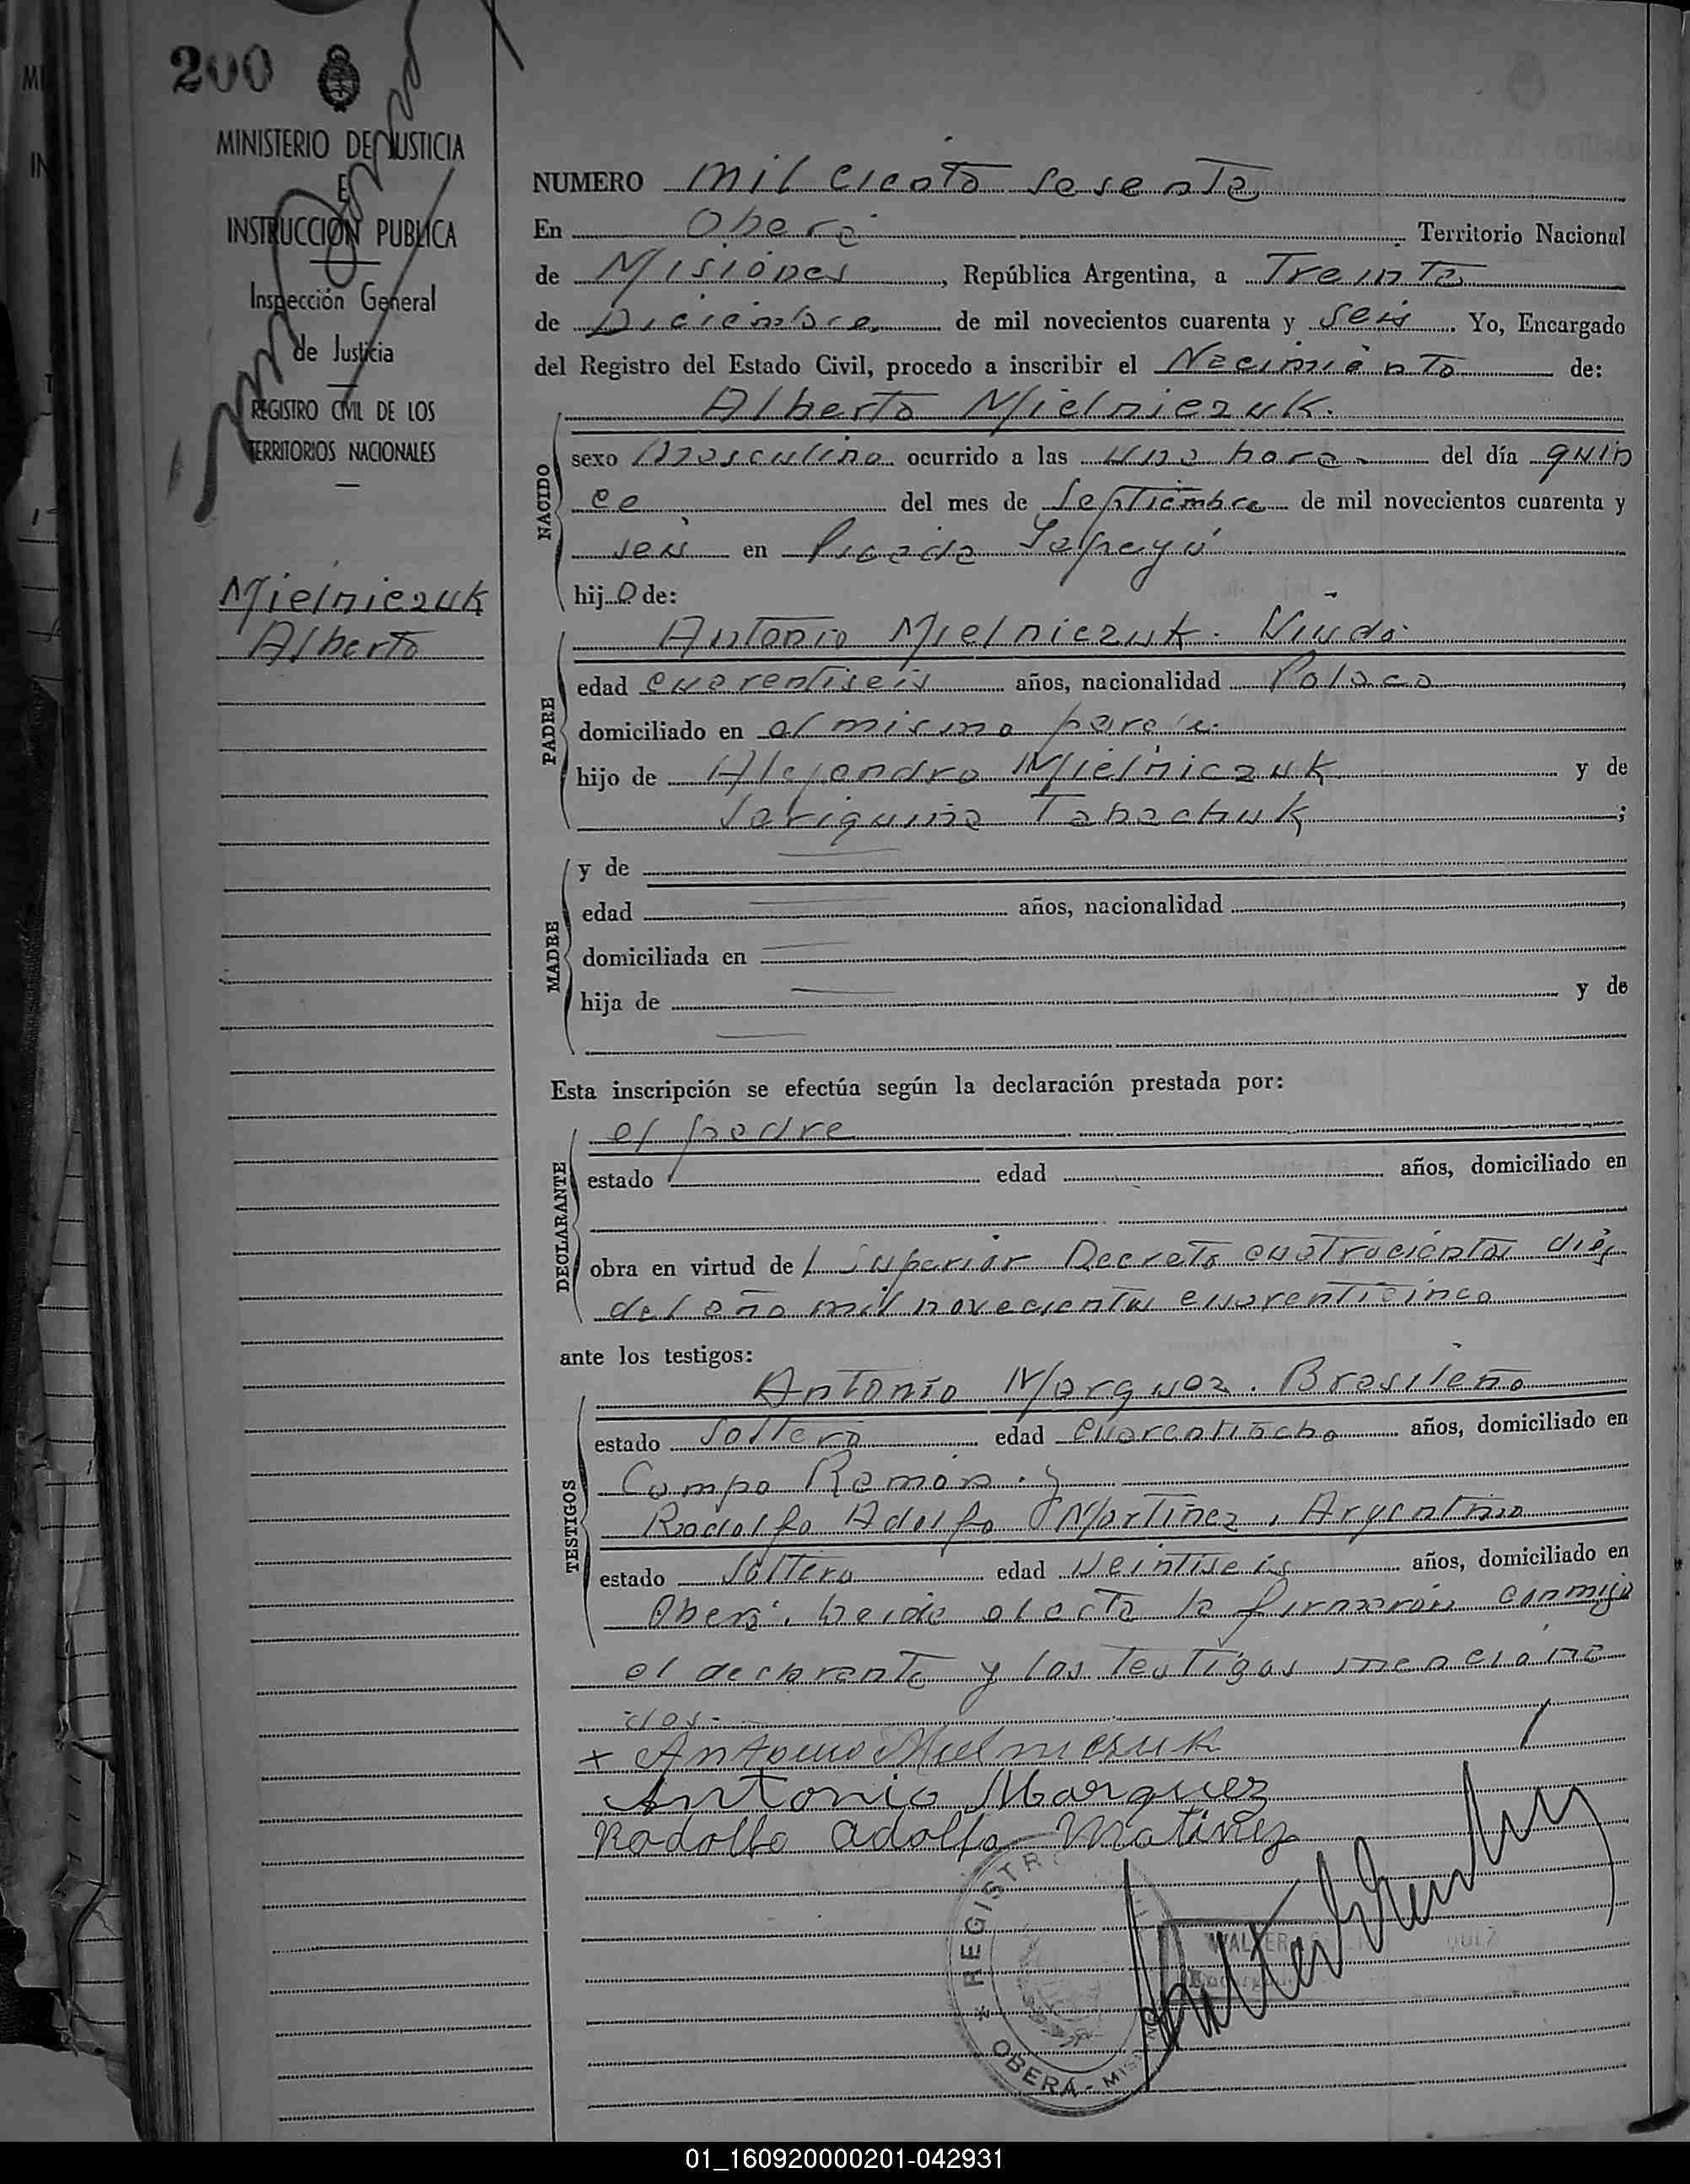 200
MINISTERIO DE JUSTICIA
E
INSTRUCCION PUBLICA
Inspección General
de Justicia
REGISTRO CIVIL DE LOS
TERRITORIOS NACIONALES
Mielniczuk
Alberto
NUMERO mil ciento sesenta
En Oberá Territorio Nacional
de Misiones, República Argentina, a Treinta
de Diciembre de mil novecientos cuarenta y seis. Yo, Encargado
del Registro del Estado Civil, procedo a inscribir el Nacimiento de:
NACIDO
Alberto Mielniczuk.
sexo Masculino ocurrido a las una hora del día quin
ce del mes de Septiembre de mil novecientos cuarenta y
seis en Picada Yapeyú
hijo de:
PADRE
Antonio Mielniczuk. Viudo
edad cuarentiseis años, nacionalidad Polaco,
domiciliado en el mismo paraje
hijo de Alejandro Mielniczuk y de
Tanachuk;
MADRE
y de
edad años, nacionalidad,
domiciliada en
hija de y de
Esta inscripción se efectúa según la declaración prestada por:
DECLARANTE
el padre
estado edad años, domiciliado en
obra en virtud de l Superior Decreto cuatrocientos diez
del año mil novecientos cuarenticinco
ante los testigos:
TESTIGOS
Antonio Marquez. Brasileño
estado Soltero edad cuarentiocho años, domiciliado en
Campo Ramón. y
Rodolfo Adolfo Martinez, Argentino
estado Soltero edad veintiseis años, domiciliado en
Oberá. Leida el acta la firmaron conmigo
el declarante y los testigos menciona
dos.-
x Antonio Mielniczuk
Antonio Marquez
Rodolfo adolfo Matinez
REGISTR
OBERÁ - MIS
WALTER
01_160920000201-042931